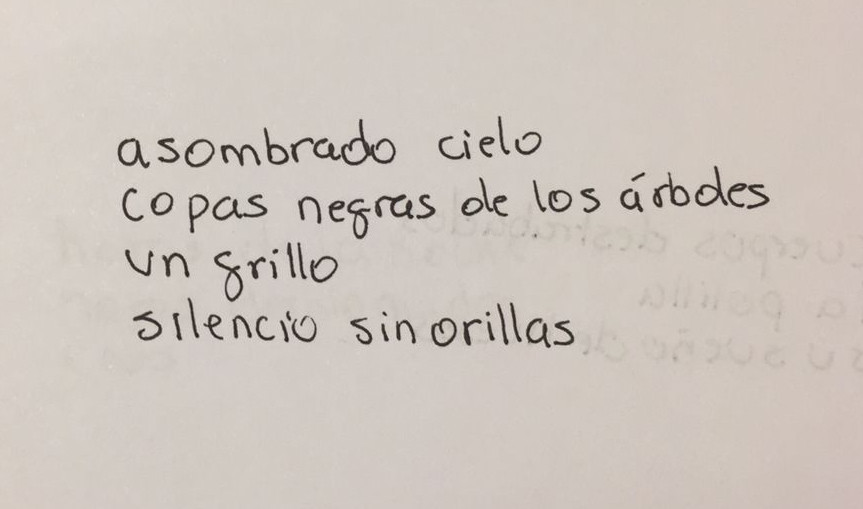 asombrado cielo
copas negras de los árboles
un grillo
silencio sin orillas